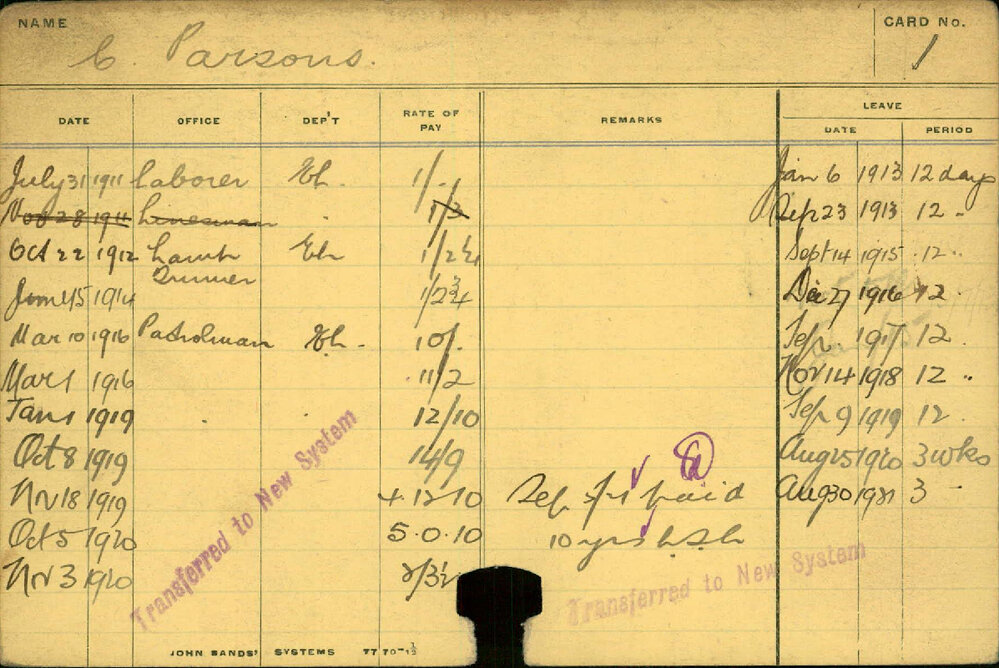 NAME
C. Parsons.
CARD No.
1
DATE OFFICE DEP'T RATE OF PAY REMARKS LEAVE
DATE PERIOD
July 31 1911 Laborer 1/. Jan 6 1913 12 days
Nov 28 1911 Linesman 1/3 Sep 23 1913 12 "
Oct 22 1912 Lamp 1/2 Sept 14 1915 12 "
Trimmer
June 15 1914 1/2¾ Dec 27 1916 12
Mar 10 1916 Patrolman 10/. Sep 1917 12
Mar 1 1916 11/2 Nov 14 1918 12 "
Jan 1 1919 12/10 Sep 9 1919 12
Oct 8 1919 14/9 Aug 25 1920 3 wks
Nv 18 1919 4.12.10 Sep paid Aug 30 1921 3 "
Oct 5 1920 5.0.10 10 yrs L.S.L
Nv 3 1920 2/3½
Transferred to New System
Transferred to New System
JOHN SANDS' SYSTEMS